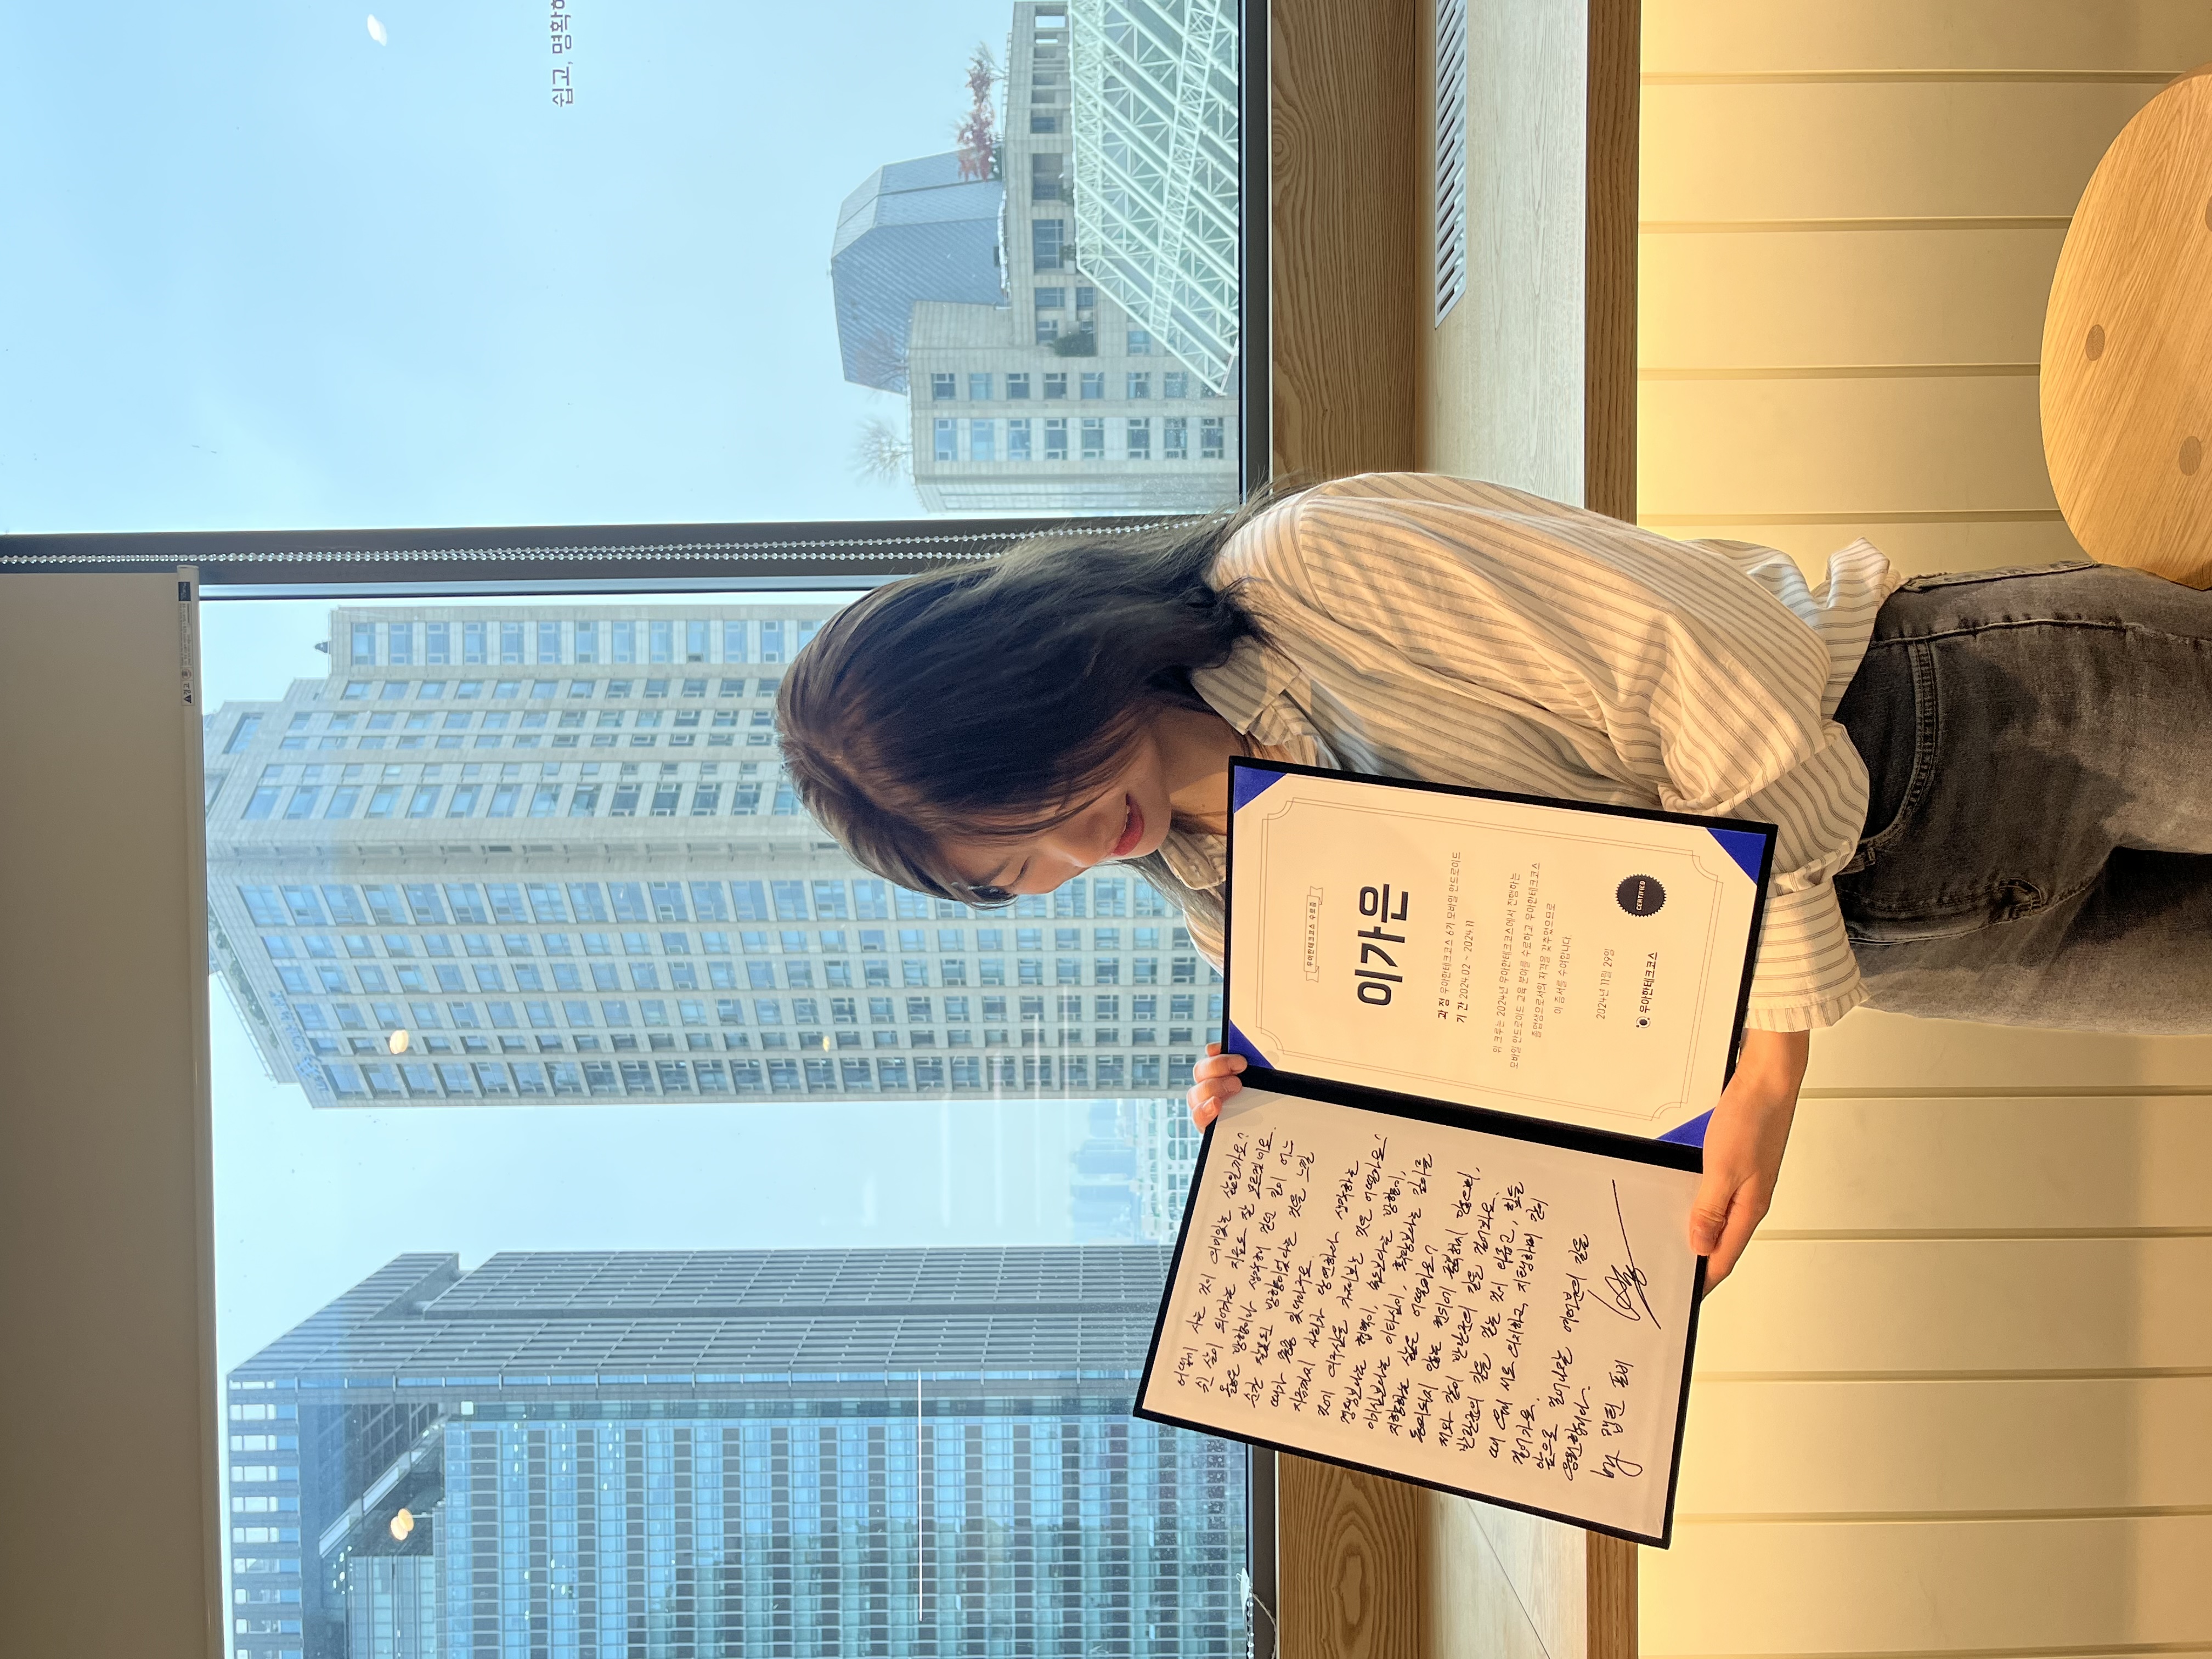 경고
쉽고, 명확하
어떻게 사는 것이 의미있는 삶일까요?
쉰 살이 되어가는 지금도 잘 모르겠네요.
옳은 방향이라 생각해 걷던 길이 어느
순간 잘못된 방향이었다는 것을 느낄
때가 종종 있더라구요.
지금까지 사회가 당연하다 생각하는
것에 의구심을 가져보는 것은 어떨까요?
경쟁보다는 협력이, 속도보다는 방향이,
이기심보다는 이타심이, 확장보다는 깊이를
지향하는 삶은 어떨까요?
동의되지 않는 권위에 굴복하지 말고,
저와 같이 반란군의 길을 걸어봐요.
반란군의 길을 걷는 것이 외롭고, 힘들
때 우리 서로 의지하고, 지탱하며 같이
걸어가요.
앞으로 걸어나갈 여러분의 길을
응원합니다.
by 캡틴 포비
우아한테크코스 수료증
이가은
과 정 우아한테크코스 6기 모바일 안드로이드
기 간 2024.02 ~ 2024.11
위 크루는 2024년 우아한테크코스에서 진행하는
모바일 안드로이드 교육 분야를 수료하고 우아한테크코스
졸업생으로서의 자격을 갖추었으므로
이 증서를 수여합니다.
2024년 11월 29일
우아한테크코스
CERTIFIED